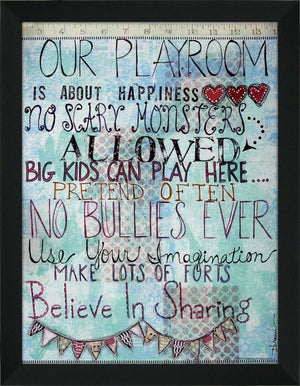 3 4 5 6 7 8 9 10 11 12 13
OUR PLAYROOM
IS ABOUT HAPPINESS
NO SCARY MONSTERS
ALLOWED
BIG KIDS CAN PLAY HERE....
PRETEND OFTEN
NO BULLIES EVER
Use Your Imagination
MAKE LOTS OF FORTS
Believe In Sharing